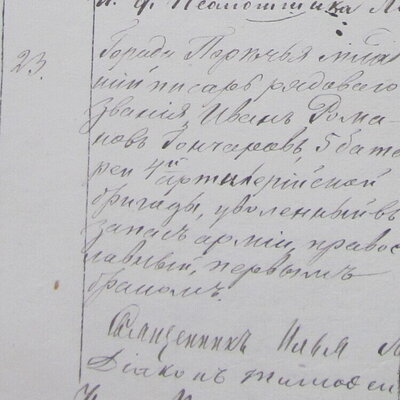 и. д. Псаломщика
23.
Города Поречья
ній писарь рядоваго
званія, Иванъ Рома-
новъ Гончаровъ, 5 бата
реи 4й артилерійской
бригады, уволенный въ
запасъ арміи, правос
лавный, первымъ
бракомъ.
Священникъ Илья
Діаконъ Тимофей